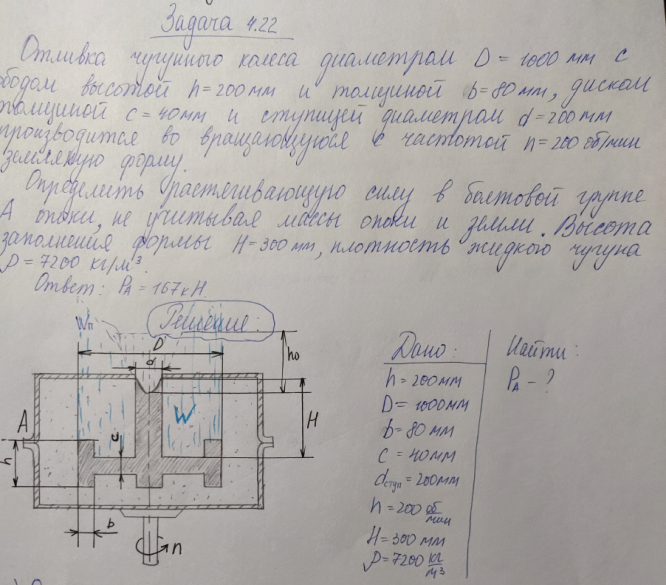 Задача 4.22
Отливка чугунного колеса диаметром D = 1000 мм с
ободом высотой h = 200 мм и толщиной b = 80 мм, диском
толщиной c = 40 мм и ступицей диаметром d = 200 мм
производится во вращающуюся с частотой n = 200 об/мин
земляную форму.
Определить растягивающую силу в болтовой группе
А опоки, не учитывая массы опоки и земли. Высота
заполнения формы H = 300 мм, плотность жидкого чугуна
ρ = 7200 кг/м³.
Ответ: P_A = 167 кН
Решение:
Wп
D
d
h₀
W
H
A
c
h
b
n
Дано:
h = 200 мм
D = 1000 мм
b = 80 мм
c = 40 мм
d ступ = 200 мм
n = 200 об/мин
H = 300 мм
ρ = 7200 кг/м³
Найти:
P_A - ?